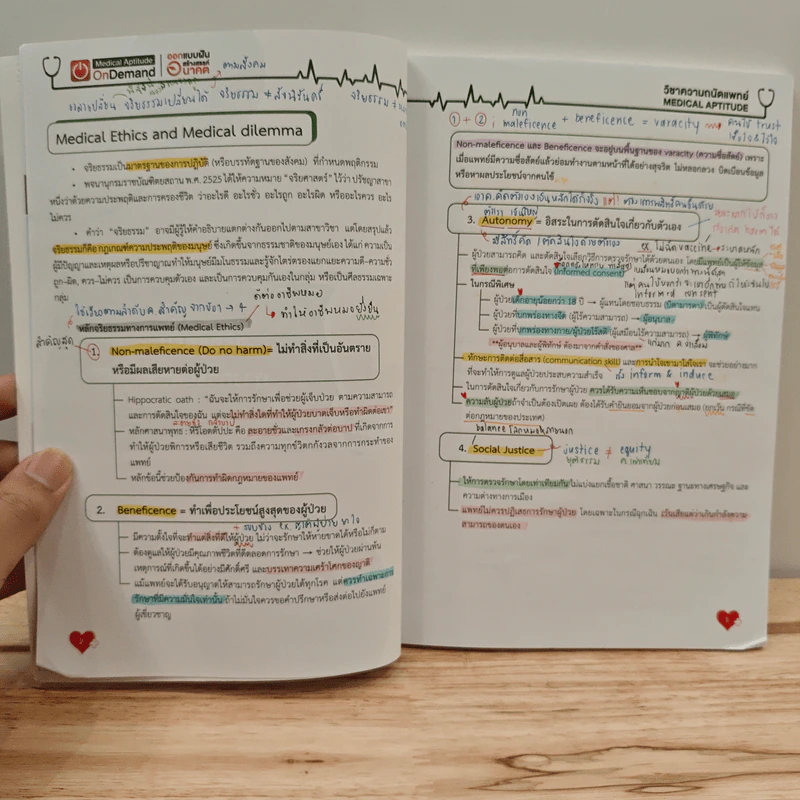 Medical Aptitude
OnDemand
ออกแบบฝัน
สร้างสรรค์
อนาคต
ตามสังคม
จริยธรรมเปลี่ยนได้ จริยธรรม ≠
จริยธรรม ≠
Medical Ethics and Medical dilemma
• จริยธรรมเป็นมาตรฐานของการปฏิบัติ (หรือบรรทัดฐานของสังคม) ที่กำหนดพฤติกรรม
• พจนานุกรมราชบัณฑิตยสถาน พ.ศ. 2525 ได้ให้ความหมาย "จริยศาสตร์" ไว้ว่า ปรัชญาสาขา
หนึ่งว่าด้วยความประพฤติและการครองชีวิต ว่าอะไรดี อะไรชั่ว อะไรถูก อะไรผิด หรืออะไรควร อะไร
ไม่ควร
• คำว่า "จริยธรรม" อาจมีผู้ให้คำอธิบายแตกต่างกันออกไปตามสาขาวิชา แต่โดยสรุปแล้ว
จริยธรรมก็คือ กฎเกณฑ์ความประพฤติของมนุษย์ ซึ่งเกิดขึ้นจากธรรมชาติของมนุษย์เอง ได้แก่ ความเป็น
ผู้มีปัญญาและเหตุผลหรือปรีชาญาณทำให้มนุษย์มีมโนธรรมและรู้จักไตร่ตรองแยกแยะความดี-ความชั่ว
ถูก-ผิด, ควร-ไม่ควร เป็นการควบคุมตัวเอง และเป็นการควบคุมกันเองในกลุ่ม หรือเป็นศีลธรรมเฉพาะ
กลุ่ม
หลักจริยธรรมทางการแพทย์ (Medical Ethics)
ทำให้อาชีพหมอยั่งยืน
สำคัญสุด
1 Non-maleficence (Do no harm) = ไม่ทำสิ่งที่เป็นอันตราย
หรือมีผลเสียหายต่อผู้ป่วย
Hippocratic oath : "ฉันจะให้การรักษาเพื่อช่วยผู้เจ็บป่วย ตามความสามารถ
และการตัดสินใจของฉัน แต่จะไม่ทำสิ่งใดที่ทำให้ผู้ป่วยบาดเจ็บหรือทำผิดต่อเขา"
หลักศาสนาพุทธ : หิริโอตตัปปะ คือ ละอายชั่วและเกรงกลัวต่อบาป ที่เกิดจากการ
ทำให้ผู้ป่วยพิการหรือเสียชีวิต รวมถึงความทุกข์จิตกังวลจากการกระทำของ
แพทย์
หลักข้อนี้ช่วยป้องกันการทำผิดกฎหมายของแพทย์
2. Beneficence = ทำเพื่อประโยชน์สูงสุดของผู้ป่วย
มีความตั้งใจที่จะทำแต่สิ่งที่ดีให้ผู้ป่วย ไม่ว่าจะรักษาให้หายขาดได้หรือไม่ก็ตาม
ต้องดูแลให้ผู้ป่วยมีคุณภาพชีวิตที่ดีตลอดการรักษา → ช่วยให้ผู้ป่วยผ่านพ้น
เหตุการณ์ที่เกิดขึ้นได้อย่างมีศักดิ์ศรี และบรรเทาความเศร้าโศกของญาติ
แม้แพทย์จะได้รับอนุญาตให้สามารถรักษาผู้ป่วยได้ทุกโรค แต่ควรทำเฉพาะการ
รักษาที่มีความมั่นใจเท่านั้น ถ้าไม่มั่นใจควรขอคำปรึกษาหรือส่งต่อไปยังแพทย์
ผู้เชี่ยวชาญ
วิชาความถนัดแพทย์
MEDICAL APTITUDE
1 + 2 ; non maleficence + beneficence = varacity → คนไข้ trust
Non-maleficence และ Beneficence จะอยู่บนพื้นฐานของ varacity (ความซื่อสัตย์) เพราะ
เมื่อแพทย์มีความซื่อสัตย์แล้วย่อมทำงานตามหน้าที่ได้อย่างสุจริต ไม่หลอกลวง บิดเบือนข้อมูล
หรือหาผลประโยชน์จากคนไข้
3. Autonomy = อิสระในการตัดสินใจเกี่ยวกับตัวเอง
ex. ไม่ฉีด vaccine
ผู้ป่วยสามารถคิด และตัดสินใจเลือกวิธีการตรวจรักษาได้ด้วยตนเอง โดยมีแพทย์เป็นผู้ให้ข้อมูล
ที่เพียงพอต่อการตัดสินใจ (informed consent)
informed consent
ในกรณีพิเศษ
ผู้ป่วยเด็กอายุน้อยกว่า 18 ปี → ผู้แทนโดยชอบธรรม (บิดามารดา) เป็นผู้ตัดสินใจแทน
ผู้ป่วยที่บกพร่องทางจิต (ผู้ไร้ความสามารถ) → ผู้อนุบาล
ผู้ป่วยที่บกพร่องทางกาย/ผู้ป่วยไร้สติ (ผู้เสมือนไร้ความสามารถ) → ผู้พิทักษ์
**ผู้อนุบาลและผู้พิทักษ์ ต้องมาจากคำสั่งของศาล**
ทักษะการติดต่อสื่อสาร (communication skill) และการนำใจเขามาใส่ใจเรา จะช่วยอย่างมาก
ที่จะทำให้การดูแลผู้ป่วยประสบความสำเร็จ ทั้ง inform & induce
ในการตัดสินใจเกี่ยวกับการรักษาผู้ป่วย ควรได้รับความเห็นชอบจากญาติผู้ป่วยด้วยเสมอ
ความลับผู้ป่วยถ้าจำเป็นต้องเปิดเผย ต้องได้รับคำยินยอมจากผู้ป่วยก่อนเสมอ (ยกเว้น กรณีผิดข้อกฎหมายของประเทศ)
4. Social Justice
justice ≠ equity
ยุติธรรม
ให้การตรวจรักษาโดยเท่าเทียมกัน ไม่แบ่งแยกเชื้อชาติ ศาสนา วรรณะ ฐานะทางเศรษฐกิจ และ
ความต่างทางการเมือง
แพทย์ไม่ควรปฏิเสธการรักษาผู้ป่วย โดยเฉพาะในกรณีฉุกเฉิน เว้นเสียแต่ว่าเกินกำลังความ
สามารถของตนเอง